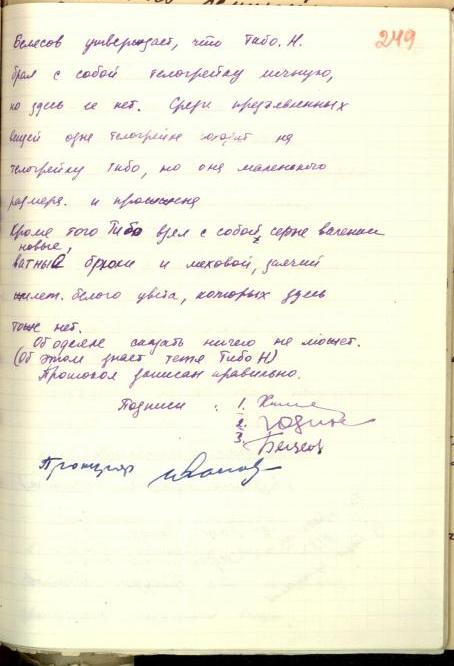 249
Белесов утверждает, что Тибо. Н.
брал с собой телогрейку личную,
но здесь ее нет. Среди предъявленных
вещей одна телогрейка походит на
телогрейку Тибо, но она маленького
размера. и
Кроме того Тибо взял с собой, серые валенки
новые,
ватные брюки и меховой, заячий
жилет. белого цвета, которых здесь
тоже нет.
Об одеяле сказать ничего не может.
(Об этом знает тетя Тибо Н)
Протокол записан правильно.
Подписи : 1.
2.
3.
Прокурор Иванов